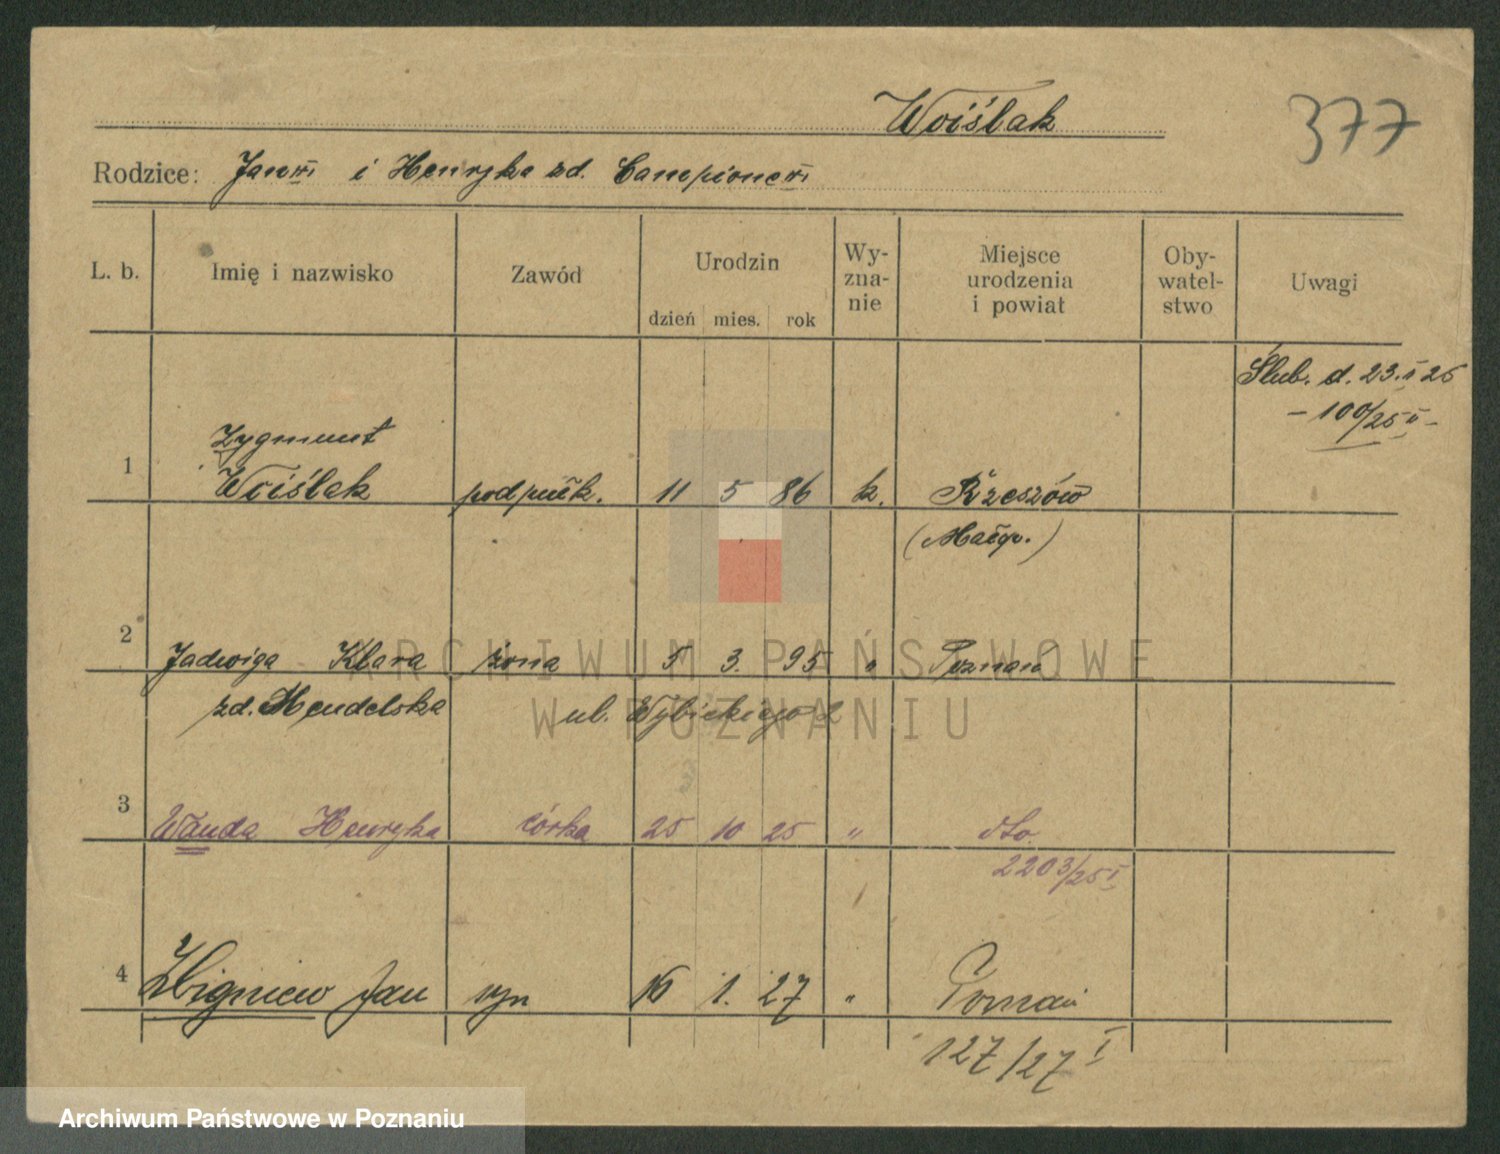 Woiślak
377
Rodzice: Jan i Henryka zd. Campione
L. b. Imię i nazwisko Zawód Urodzin dzień mies. rok Wyznanie Miejsce urodzenia i powiat Obywatelstwo Uwagi
Ślub. d. 23. II 25
- 100/25 II -
1 Zygmunt
Woiślak podpułk. 11 5 86 k. Rzeszów
(Małop.)
2 Jadwiga Klara żona 5 3. 95 " Poznań
zd. Mendelska ul. Wybickiego 2
3 Wanda Henryka córka 25 10 25 " dto.
2203/25 I
4 Zbigniew Jan syn 16 1. 27 " Poznań
127/27 I
ARCHIWUM PAŃSTWOWE
W POZNANIU
Archiwum Państwowe w Poznaniu